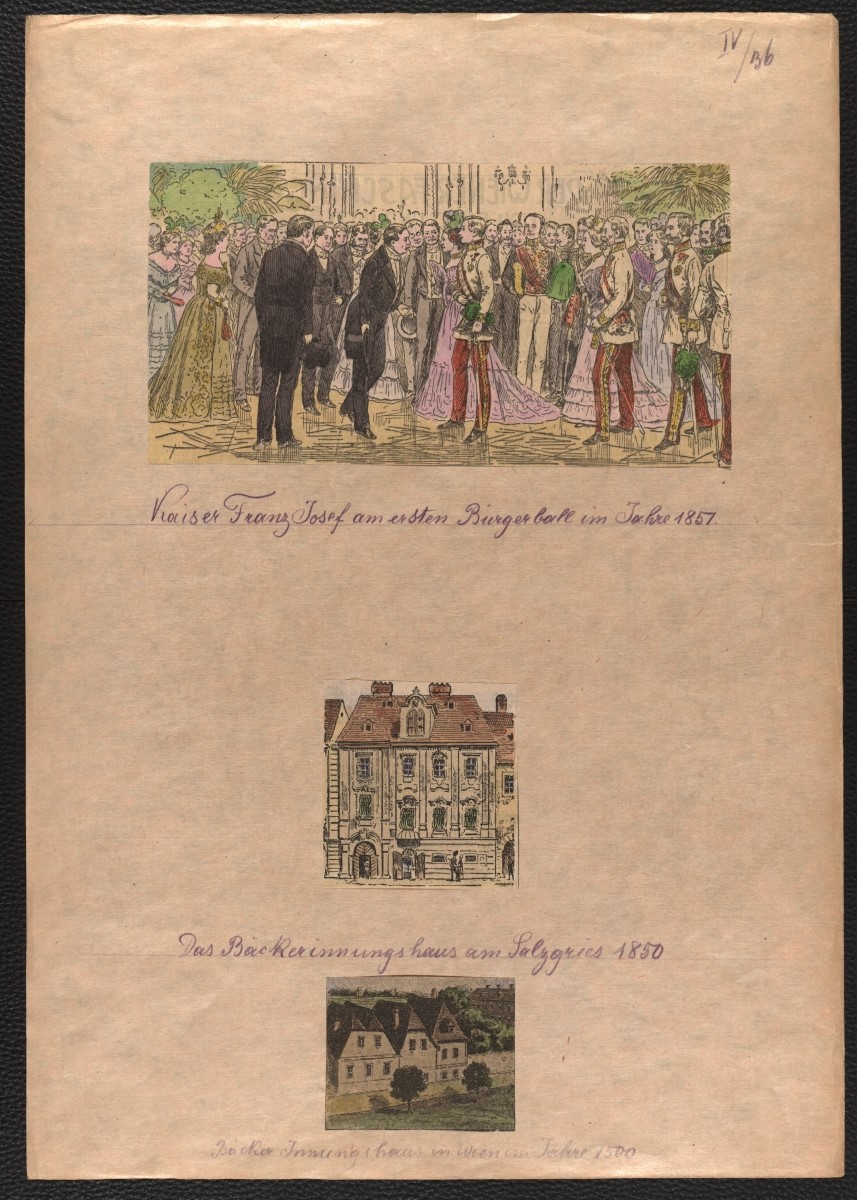 IV/136
Kaiser Franz Josef am ersten Bürgerball im Jahre 1851.
Das Bäckerinnungshaus am Salzgries 1850
Bäcker Innungshaus in Wien im Jahre 1500